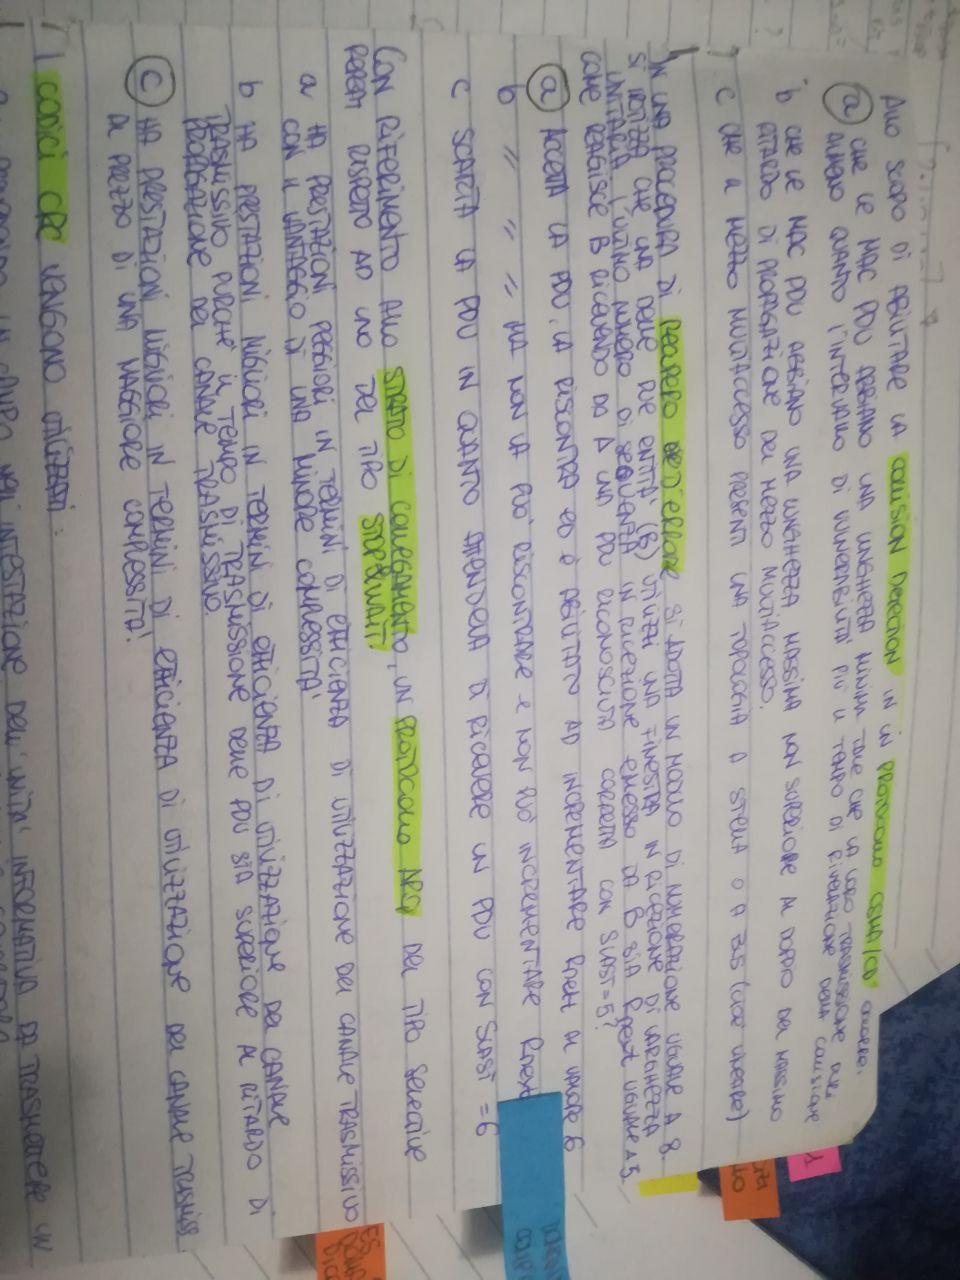 ALLO SCOPO DI ABILITARE LA COLLISION DETECTION IN UN PROTOCOLLO CSMA/CD OCCORRE:
a CHE LE MAC PDU ABBIANO UNA LUNGHEZZA MINIMA TALE CHE LA LORO TRASMISSIONE DURI
ALMENO QUANTO L'INTERVALLO DI VULNERABILITA' PIU' IL TEMPO DI RIVELAZIONE DELLA COLLISIONE
b CHE LE MAC PDU ABBIANO UNA LUNGHEZZA MASSIMA NON SUPERIORE AL DOPPIO DEL MASSIMO
RITARDO DI PROPAGAZIONE DEL MEZZO MULTIACCESSO.
c CHE IL MEZZO MULTIACCESSO PRESENTI UNA TOPOLOGIA A STELLA O A BUS (CIOE' LINEARE)
IN UNA PROCEDURA DI RECUPERO D'ERRORE SI ADOTTA UN MODULO DI NUMERAZIONE UGUALE A 8.
SI IPOTIZZA CHE UNA DELLE DUE ENTITA' (B) UTILIZZI UNA FINESTRA IN RICEZIONE DI LARGHEZZA
UNITARIA. L'ULTIMO NUMERO DI SEQUENZA IN RICEZIONE EMESSO DA B SIA Rnext UGUALE A 5.
COME REAGISCE B RICEVENDO DA A UNA PDU RICONOSCIUTA CORRETTA CON SLAST=5?
a ACCETTA LA PDU, LA RISCONTRA ED E' ABILITATO AD INCREMENTARE Rnext AL VALORE 6
b " " " MA NON LA PUO' RISCONTRARE E NON PUO' INCREMENTARE Rnext
c SCARTA LA PDU IN QUANTO ATTENDEVA DI RICEVERE UN PDU CON SLAST = 6
CON RIFERIMENTO ALLO STRATO DI COLLEGAMENTO, UN PROTOCOLLO ARQ DEL TIPO SELECTIVE
REPEAT RISPETTO AD UNO DEL TIPO STOP&WAIT:
a HA PRESTAZIONI PEGGIORI IN TERMINI DI EFFICIENZA DI UTILIZZAZIONE DEL CANALE TRASMISSIVO
CON IL VANTAGGIO DI UNA MINORE COMPLESSITA'
b HA PRESTAZIONI MIGLIORI IN TERMINI DI EFFICIENZA DI UTILIZZAZIONE DEL CANALE
TRASMISSIVO PURCHE' IL TEMPO DI TRASMISSIONE DELLE PDU SIA SUPERIORE AL RITARDO DI
PROPAGAZIONE DEL CANALE TRASMISSIVO.
c HA PRESTAZIONI MIGLIORI IN TERMINI DI EFFICIENZA DI UTILIZZAZIONE DEL CANALE TRASMISS
AL PREZZO DI UNA MAGGIORE COMPLESSITA'.
I CODICI CRC VENGONO UTILIZZATI:
CAMPO NELL'INTESTAZIONE DELL'UNITA' INFORMATIVA DA TRASMETTERE UN
1
ES